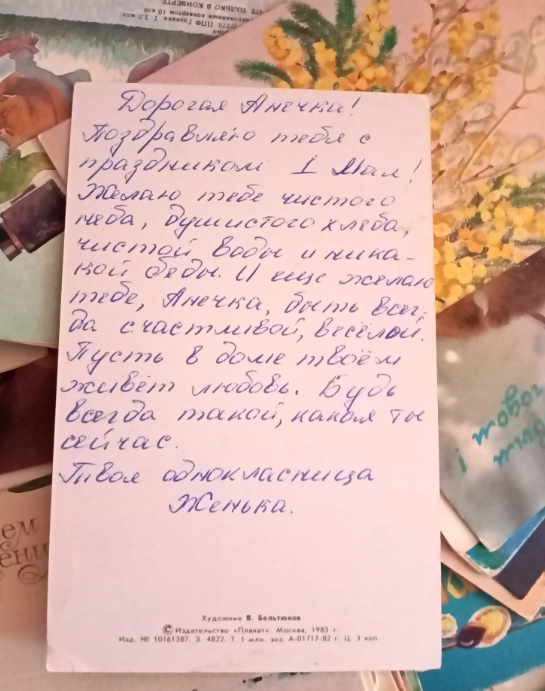 Дорогая Анечка!
Поздравляю тебя с
праздником 1 Мая!
Желаю тебе чистого
неба, душистого хлеба,
чистой воды и ника-
кой беды. И еще желаю
тебе, Анечка, быть всег-
да счастливой, весёлой.
Пусть в доме твоём
живёт любовь. Будь
всегда такой, какая ты
сейчас.
Твоя однокласница
Женька.
Художник В. Бельтюков
© Издательство «Плакат». Москва, 1983 г.
Изд. № 10161387. З. 4822. Т. 1 млн. экз. А-01717-82 г. Ц. 3 коп.
ТОЛЬКО В КОНВЕРТЕ